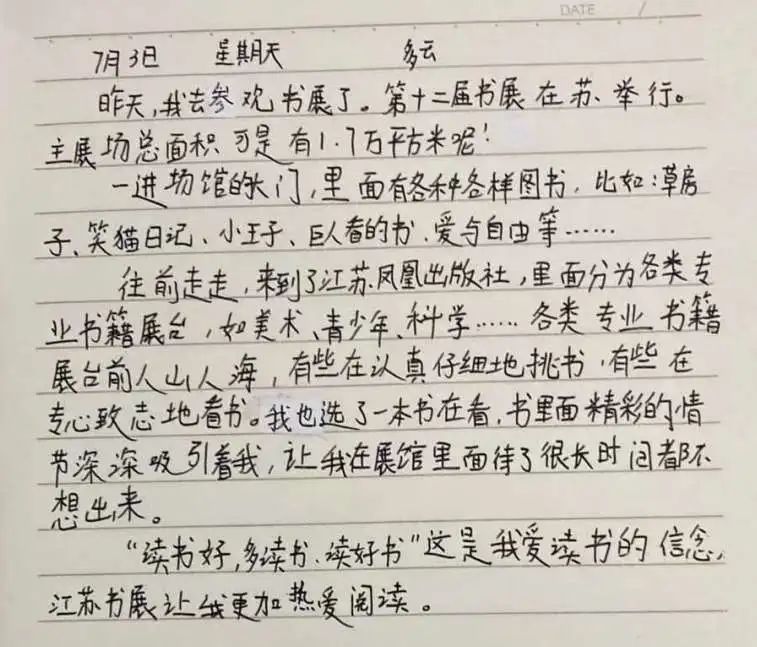 DATE /
7月3日 星期天 多云
昨天,我去参观书展了。第十二届书展在苏州举行。
主展场总面积可是有1.7万平方米呢!
一进场馆的大门,里面有各种各样图书,比如:草房
子、笑猫日记、小王子、巨人看的书、爱与自由等……
往前走走,来到了江苏凤凰出版社,里面分为各类专
业书籍展台,如美术、青少年、科学……各类专业书籍
展台前人山人海,有些在认真仔细地挑书,有些在
专心致志地看书。我也选了一本书在看,书里面精彩的情
节深深吸引着我,让我在展馆里面待了很长时间都不
想出来。
“读书好,多读书、读好书”这是我爱读书的信念,
江苏书展让我更加热爱阅读。